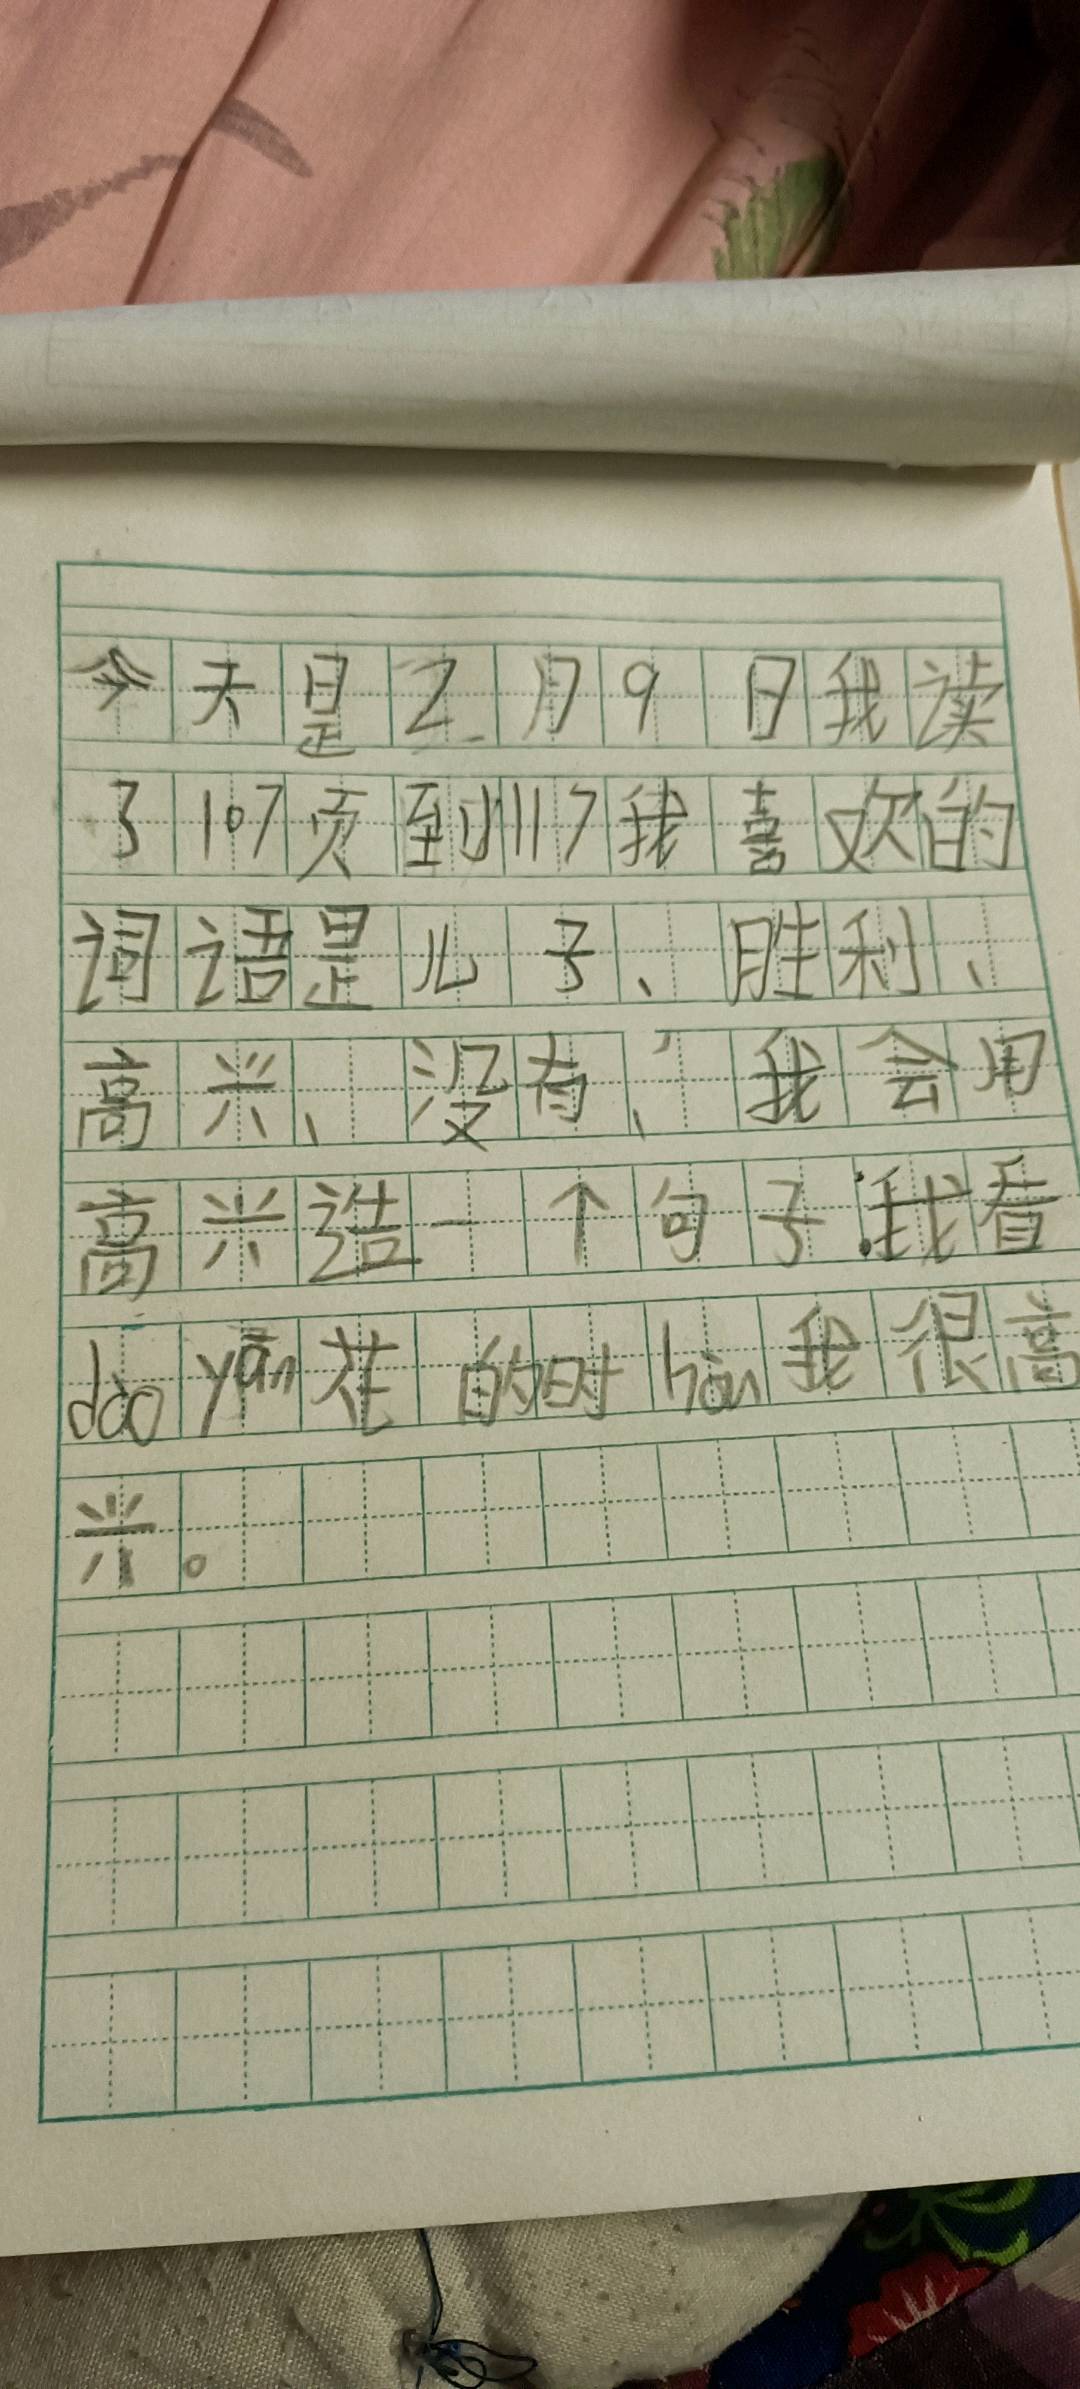 今天是2月9日我读
了107页到117我喜欢的
词语是儿子、胜利、
高兴、没有、我会用
高兴造一个句子:我看
dào yān花的时hòu我很高
兴。